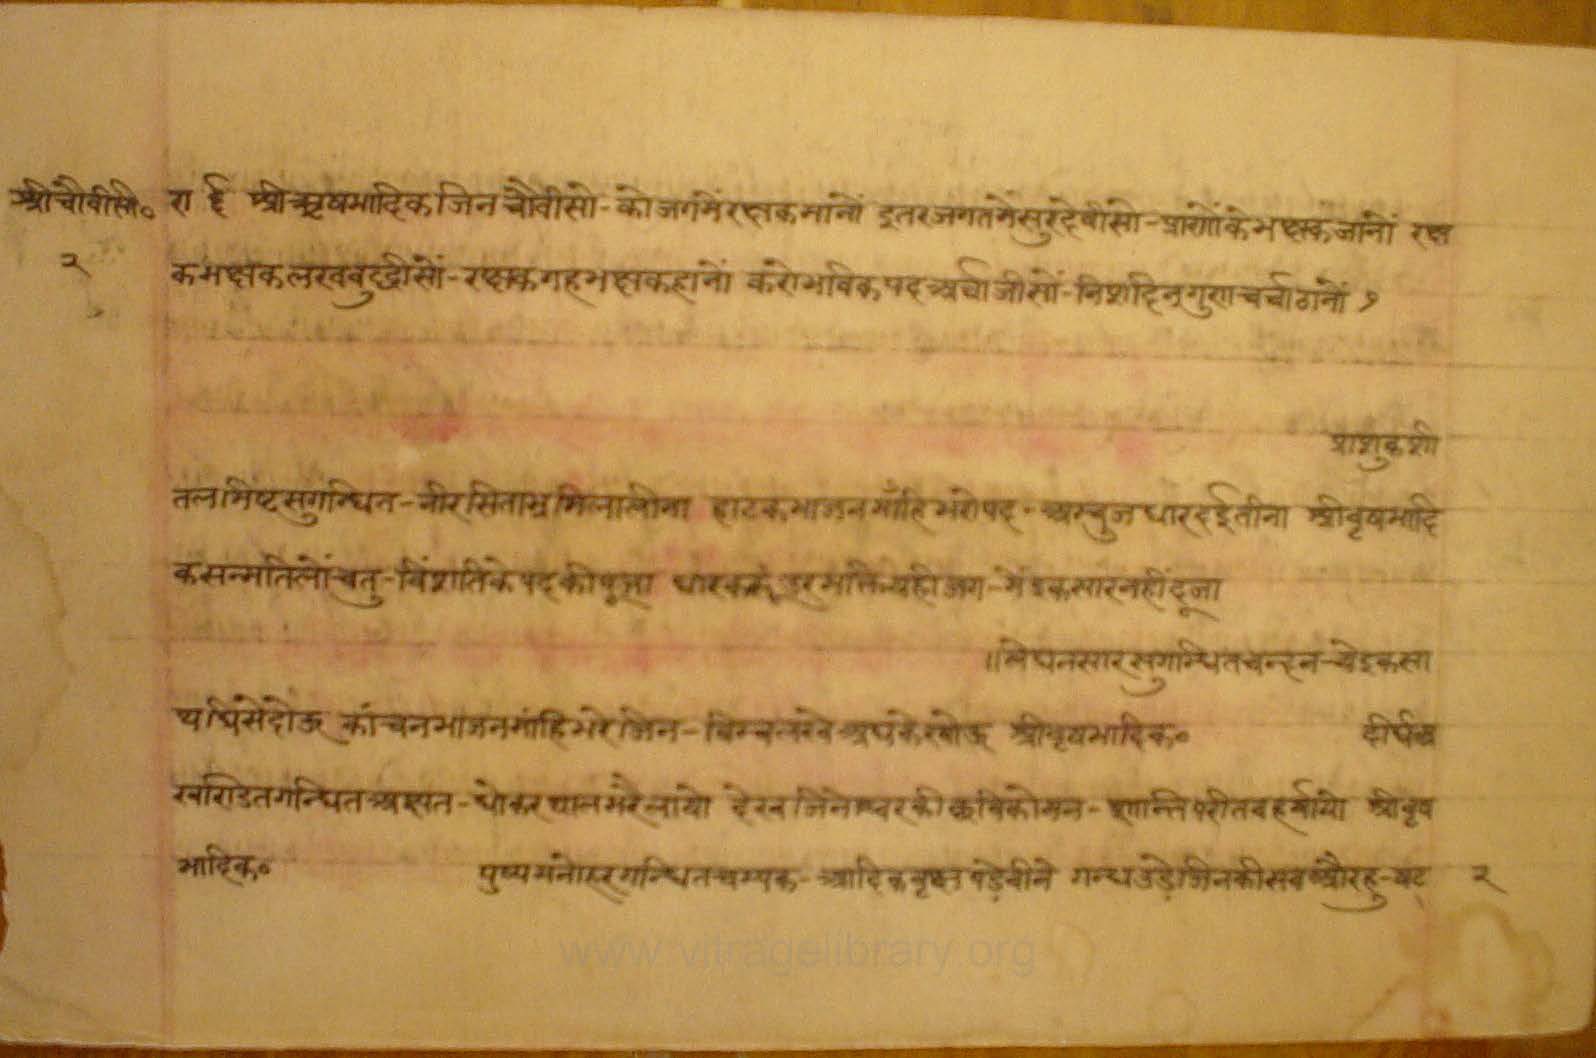 श्रीचौवीसी० रा ई श्रीऋषभादिकजिनचौवीसो-कोजगमेंरक्षकमानों इतरजगतमेंसुरदेवीसो-प्राणोंकेभक्षकजानों रक्ष
२ कभक्षकलखबुद्धीसों-रक्षकगहभक्षकहानों करोभविकपदअर्चाजीसों-निशदिनगुणचर्चाठानों १
प्राशुकशी
तलमिष्टसुगन्धित-नीरसिताभ्रमिलालीना हाटकभाजनमाँहिभरोपद-अम्बुजधारदईतीना श्रीवृषभादि
कसन्मतिलोंचतु-विंशतिकेपदकीपूजा धारककूंउरभक्तियही जग-मेंइकसारनहींदूजा
॥लेघनसारसुगन्धितचन्दन-येइकसा
थघिसेदोऊ कांचनभाजनमांहिभरेजिन-बिम्बलखे अघकेखोऊ श्रीवृषभादिक० दीर्घअ
खण्डितगन्धितअक्षत-धोकरथालभरैलायो देखजिनेश्वरकीछविकोमन-शान्तिपरीतबहर्षायो श्रीवृष
भादिक० पुष्पमनोहरगन्धितचम्पक-आदिकवृक्षपड़ेबीने गन्धउड़ेजिनकीसबओरहु-षट् २
www.vitragelibrary.org